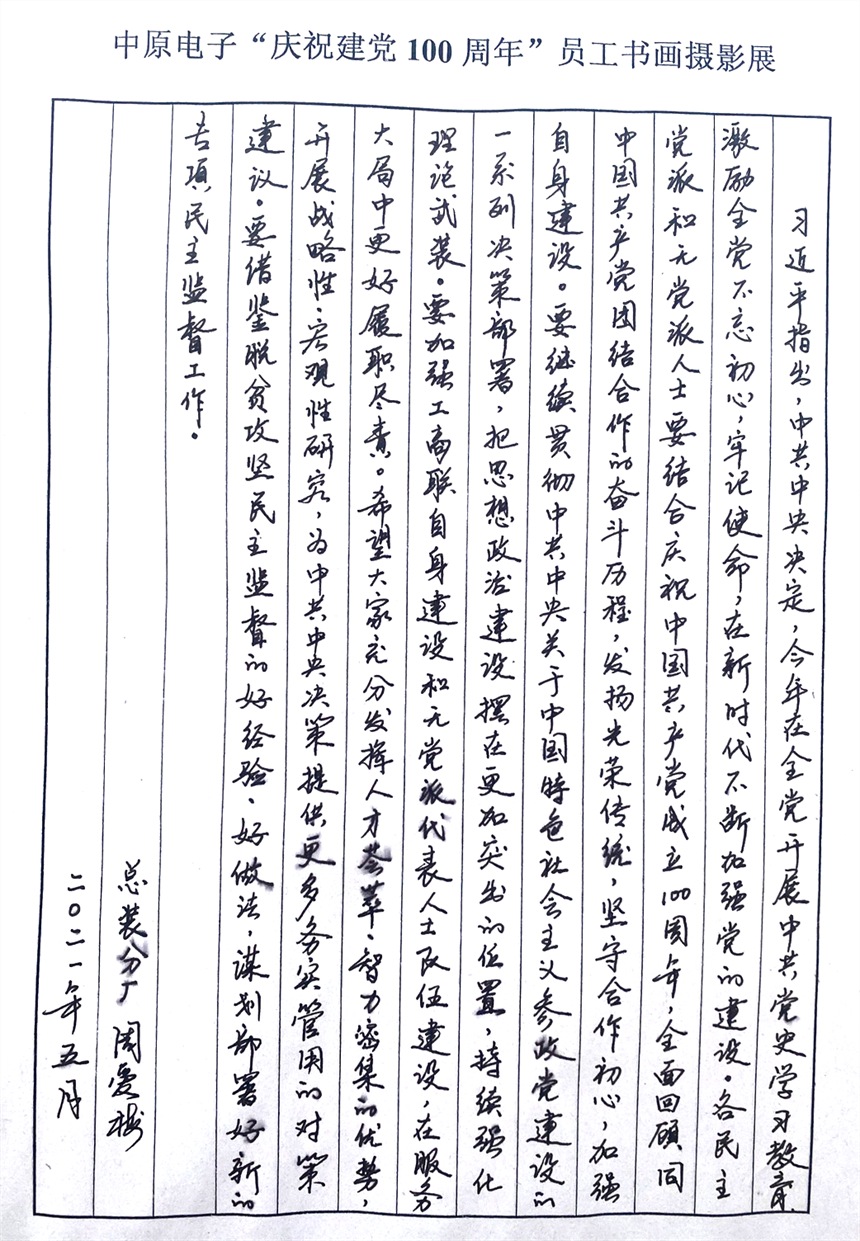 中原电子“庆祝建党100周年”员工书画摄影展
习近平指出，中共中央决定，今年在全党开展中共党史学习教育，
激励全党不忘初心，牢记使命，在新时代不断加强党的建设。各民主
党派和无党派人士要结合庆祝中国共产党成立100周年，全面回顾同
中国共产党团结合作的奋斗历程，发扬光荣传统，坚守合作初心，加强
自身建设。要继续贯彻中共中央关于中国特色社会主义参政党建设的
一系列决策部署，把思想政治建设摆在更加突出的位置，持续强化
理论武装。要加强工商联自身建设和无党派代表人士队伍建设，在服务
大局中更好履职尽责。希望大家充分发挥人才荟萃、智力密集的优势，
开展战略性、宏观性研究，为中共中央决策提供更多务实管用的对策
建议。要借鉴脱贫攻坚民主监督的好经验、好做法，谋划部署好新的
专项民主监督工作。
总装分厂 周爱梅
二〇二一年五月